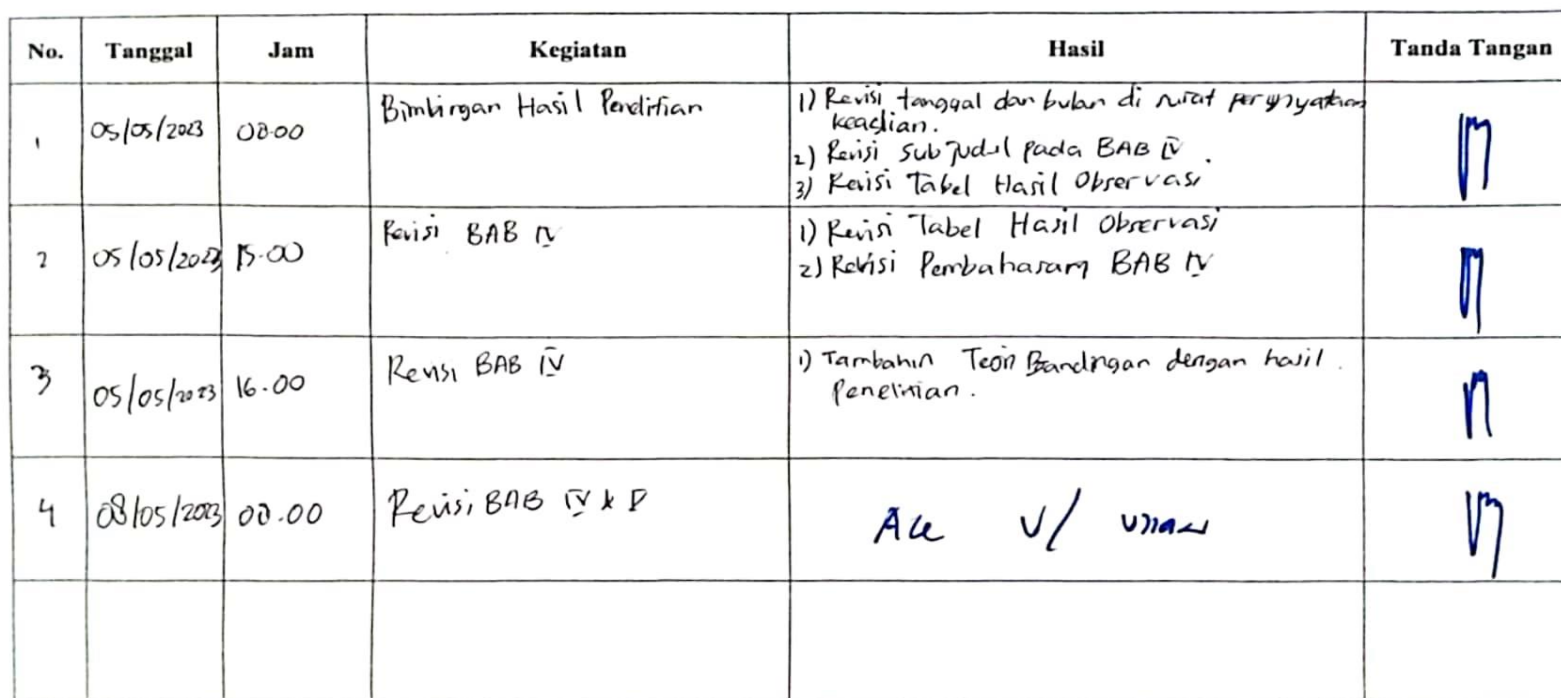 No. Tanggal Jam Kegiatan Hasil Tanda Tangan
1 05/05/2023 08.00 Bimbingan Hasil Penelitian 1) Revisi tanggal dan bulan di surat pernyataan
keaslian.
2) Revisi Sub Judul pada BAB IV.
3) Revisi Tabel Hasil Observasi
2 05/05/2023 15.00 Revisi BAB IV 1) Revisi Tabel Hasil Observasi
2) Revisi Pembahasan BAB IV
3 05/05/2023 16.00 Revisi BAB IV 1) Tambahin Teori Bandingan dengan hasil.
Penelitian.
4 08/05/2023 08.00 Revisi BAB IV & V Acc U/ Ujian